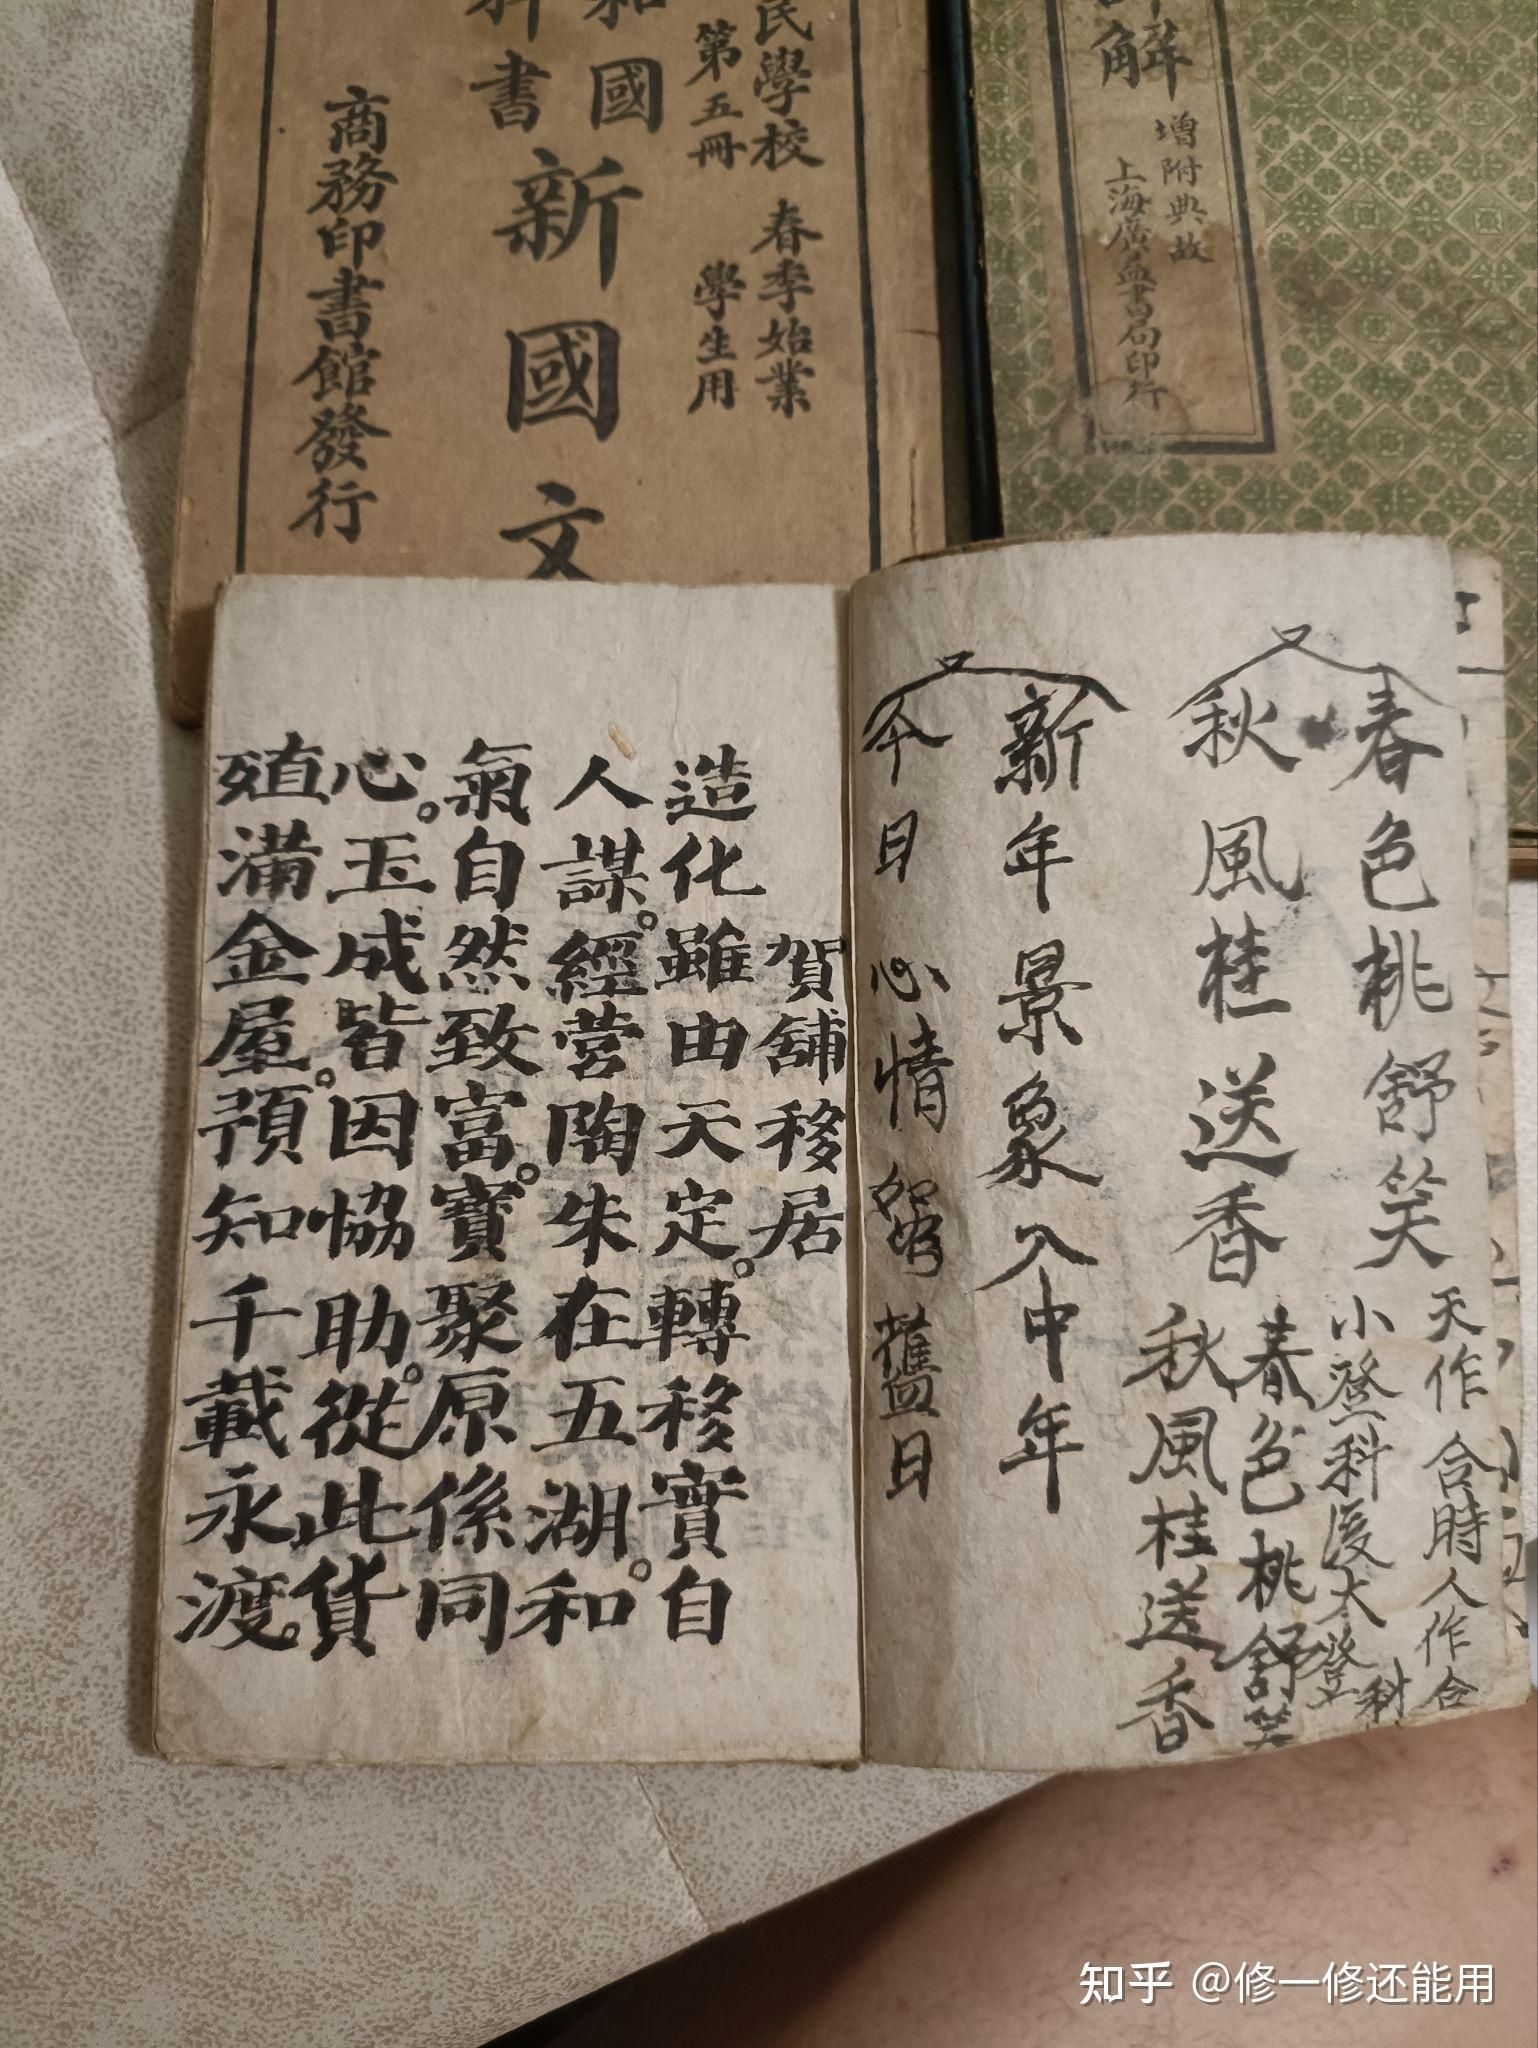 民學校 春季始業
第五冊 學生用
和國
科書
新國文
商務印書館發行
解
增附典故
上海廣益書局印行
又
春色桃舒笑
秋風桂送香
天作合時人作合
小登科後大登科
春色桃舒笑
秋風桂送香
又
新年景象入中年
今日心情猶舊日
賀舖移居
造化雖由天定。轉移實自
人謀。經营陶朱在五湖。和
氣自然致富。寶聚原係同
心。玉成皆因協助。從此貨
殖滿金屋。預知千載永渡。
知乎 @修一修还能用